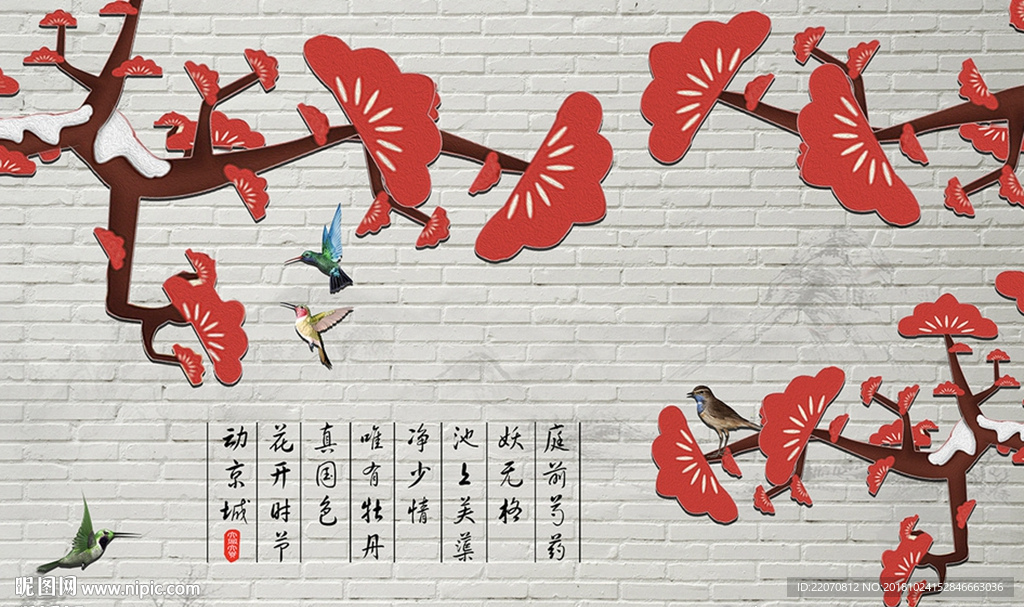 庭前芍药
妖无格
池上美蕖
净少情
唯有牡丹
真国色
花开时节
动京城
昵图网 www.nipic.com
ID:22070812 NO:20181024152846663036